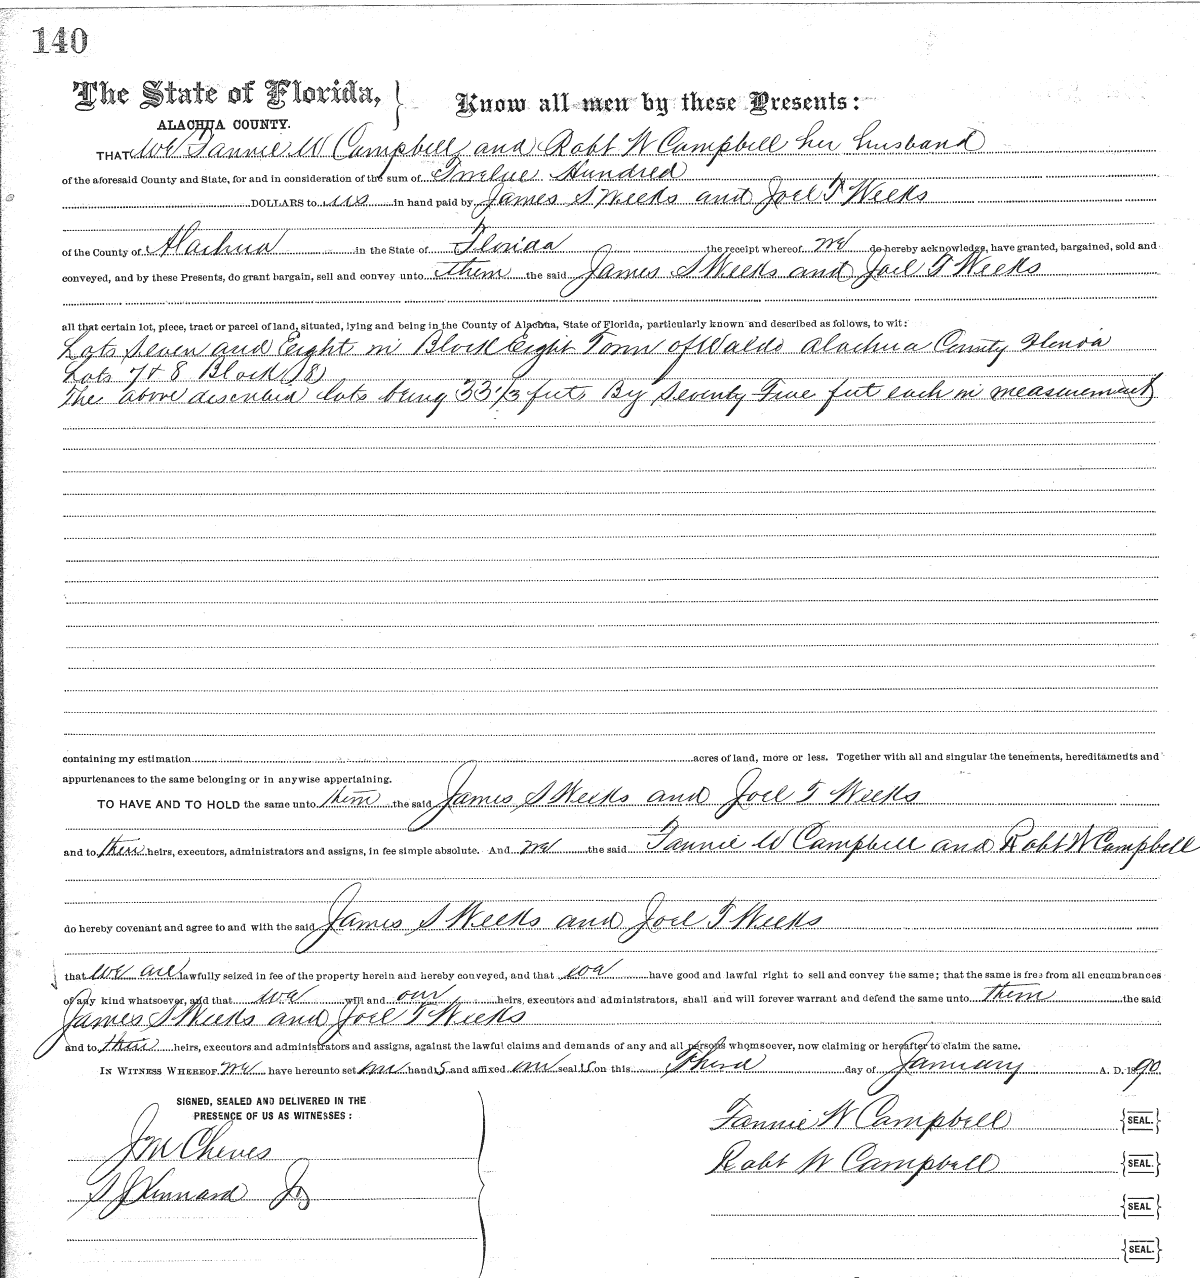 140
The State of Florida, Know all men by these Presents:
ALACHUA COUNTY.
THAT We Fannie W Campbell and Robt W Campbell her husband
of the aforesaid County and State, for and in consideration of the sum of Twelve Hundred
DOLLARS to us in hand paid by James S Weeks and Joel T Weeks
of the County of Alachua in the State of Florida the receipt whereof we do hereby acknowledge, have granted, bargained, sold and
conveyed, and by these Presents, do grant bargain, sell and convey unto them the said James S Weeks and Joel T Weeks
all that certain lot, piece, tract or parcel of land, situated, lying and being in the County of Alachua, State of Florida, particularly known and described as follows, to wit:
Lots Seven and Eight in Block Eight Town of Waldo Alachua County Florida
Lots 7 & 8 Block (8)
The above described lots being 33 1/3 feet By Seventy Five feet each in measurement
containing my estimation acres of land, more or less. Together with all and singular the tenements, hereditaments and
appurtenances to the same belonging or in anywise appertaining.
TO HAVE AND TO HOLD the same unto them the said James S Weeks and Joel T Weeks
and to their heirs, executors, administrators and assigns, in fee simple absolute. And we the said Fannie W Campbell and Robt W Campbell
do hereby covenant and agree to and with the said James S Weeks and Joel T Weeks
that we are lawfully seized in fee of the property herein and hereby conveyed, and that we have good and lawful right to sell and convey the same; that the same is free from all encumbrances
of any kind whatsoever, and that we will and our heirs, executors and administrators, shall and will forever warrant and defend the same unto them the said
James S Weeks and Joel T Weeks
and to their heirs, executors and administrators and assigns, against the lawful claims and demands of any and all persons whomsoever, now claiming or hereafter to claim the same.
IN WITNESS WHEREOF we have hereunto set our hands and affixed our seals on this Third day of January A. D. 1890
SIGNED, SEALED AND DELIVERED IN THE
PRESENCE OF US AS WITNESSES:
Fannie W Campbell {SEAL.}
J M Cheves
Robt W Campbell {SEAL.}
S J Kennard Jr
{SEAL}
{SEAL.}